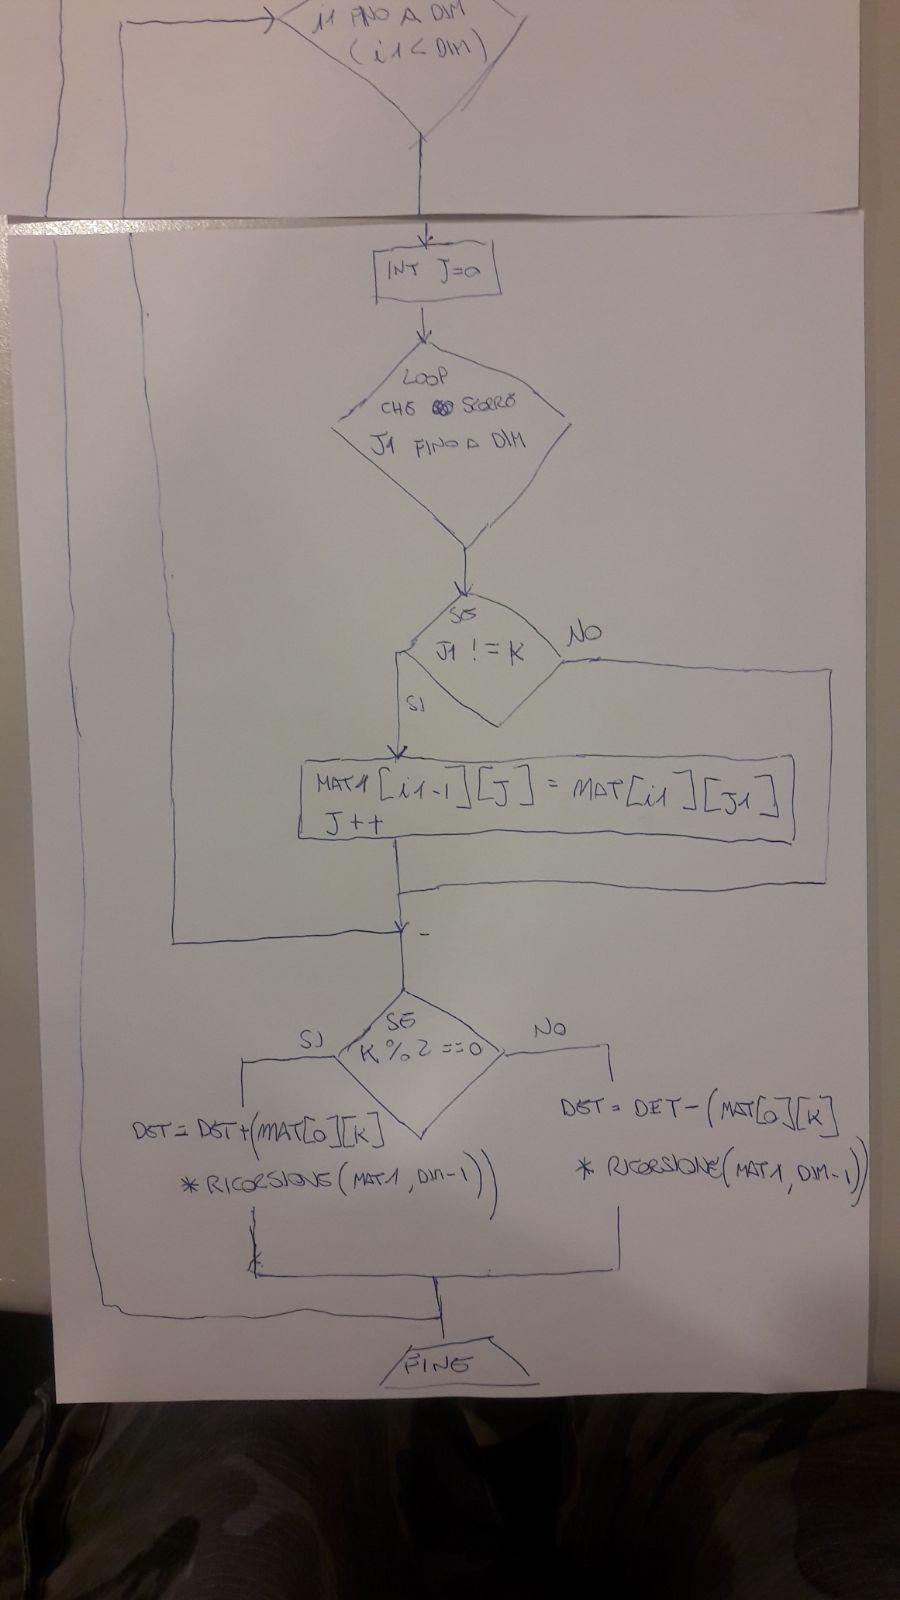 i1 FINO A DIM
(i1 < DIM)
INT J=0
LOOP
CHE SCORRE
J1 FINO A DIM
SE
J1 != K
NO
SI
MAT1[i1-1][J] = MAT[i1][J1]
J++
-
SE
K%2==0
SI
NO
DET = DET+(MAT[0][K]
* RICORSIONE(MAT1, DIM-1))
DET = DET-(MAT[0][K]
* RICORSIONE(MAT1, DIM-1))
FINE